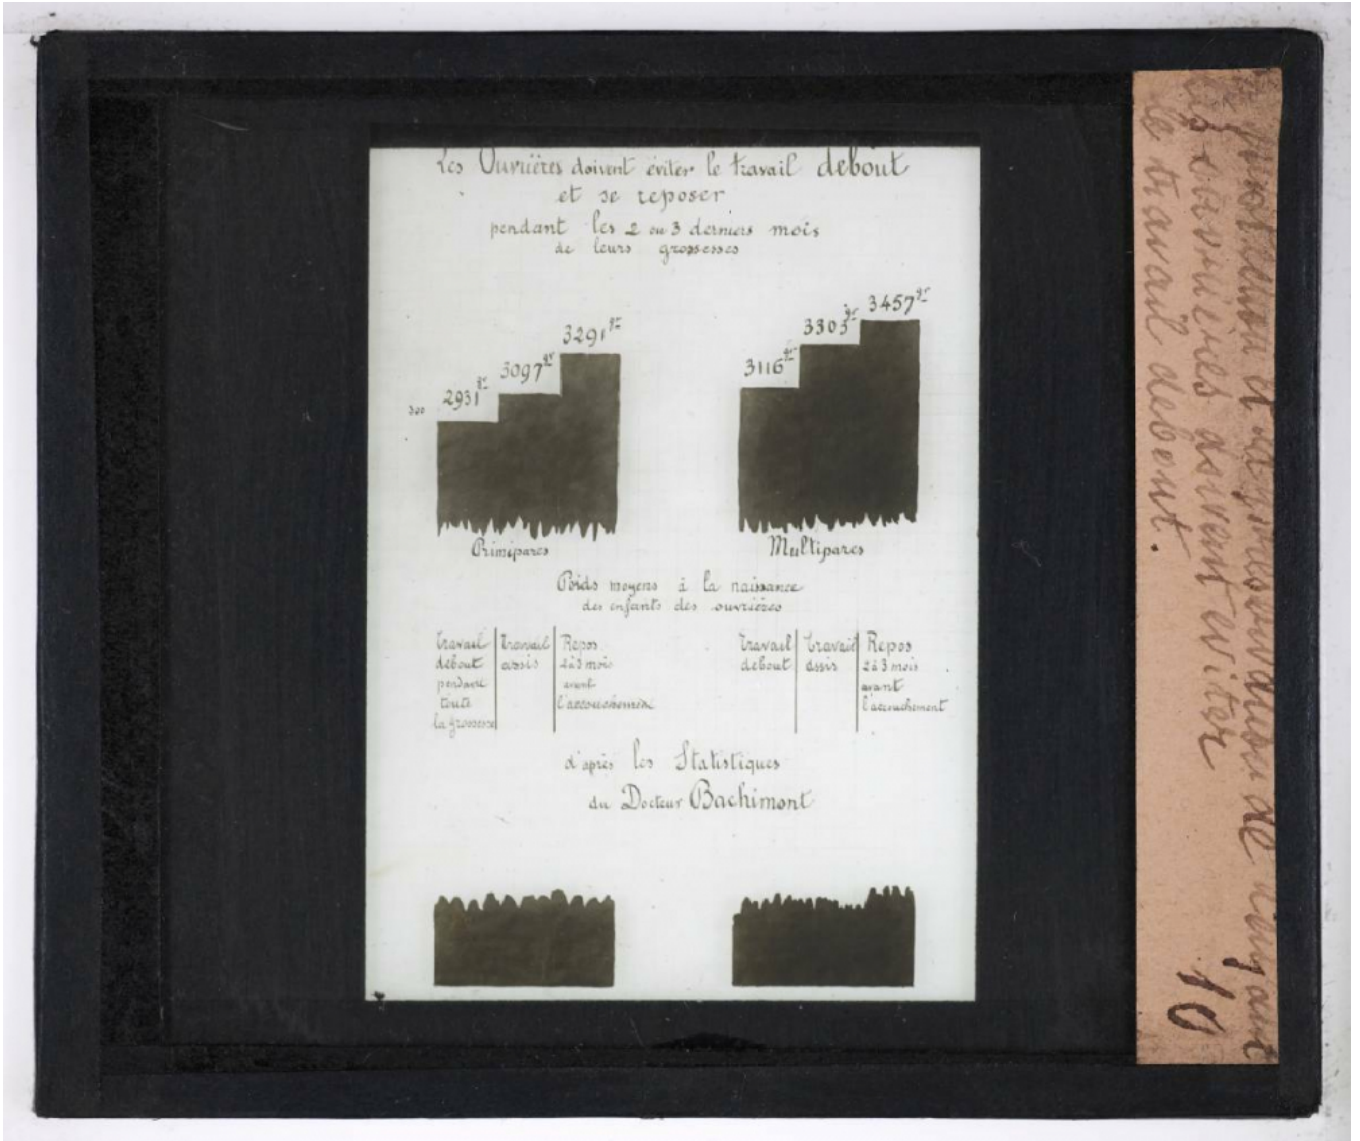 Les Ouvrières doivent éviter le travail debout
et se reposer
pendant les 2 ou 3 derniers mois
de leurs grossesses
3291gr
3097gr
2931gr
300
3457gr
3303gr
3116gr
Primipares
Multipares
Poids moyens à la naissance
des enfants des ouvrières
travail
debout
pendant
toute
la grossesse
travail
assis
Repos
2 à 3 mois
avant
l'accouchement
travail
debout
travail
assis
Repos
2 à 3 mois
avant
l'accouchement
d'après les Statistiques
du Docteur Bachimont
et la de l'enfant
les ouvrières doivent eviter
le travail debout.
10